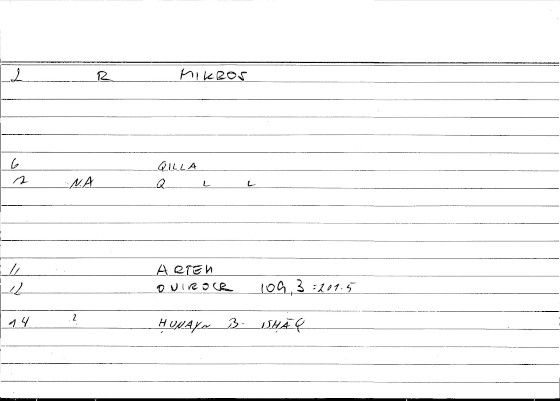 1 R MIKROS
6 QILLA
7 NA Q L L
11 ARTEM
12 OUIROCR 109,3 =201.5
14 ? ḤUNAYN B. ISḤĀQ